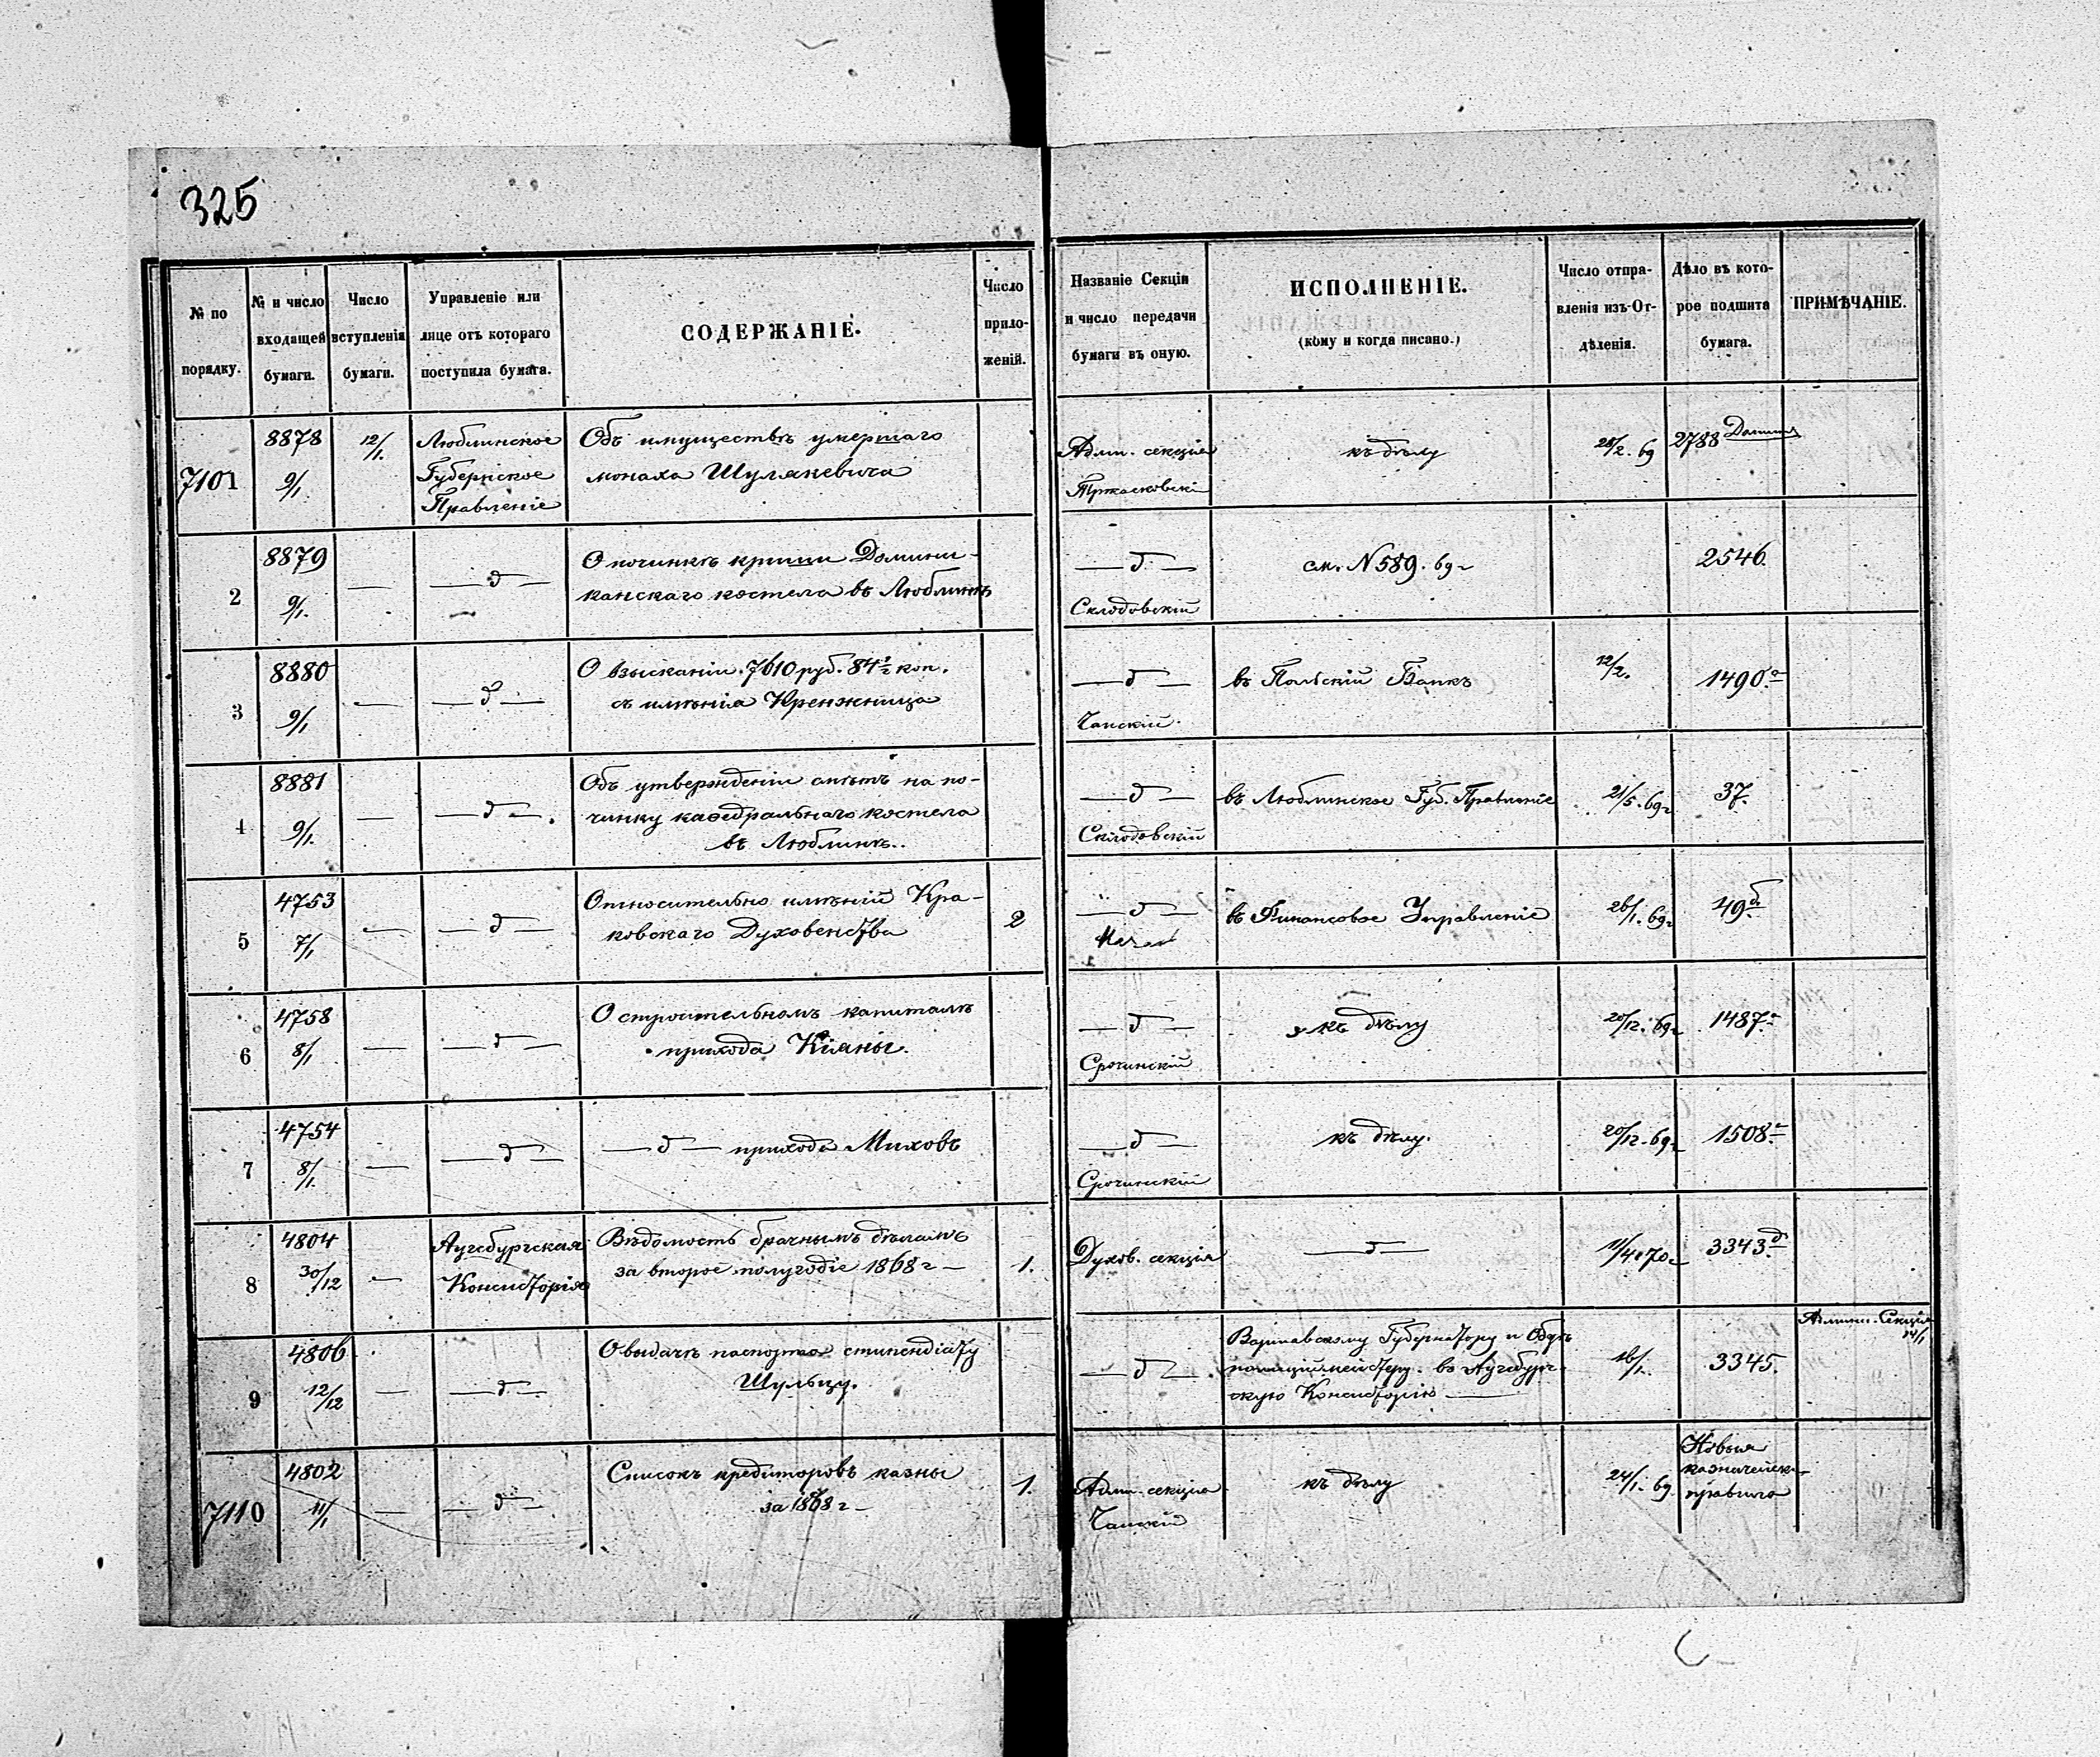 325
№ по порядку.
№ и число входящей бумаги.
Число вступленія бумаги.
Управленіе или лице отъ котораго поступила бумага.
СОДЕРЖАНІЕ.
Число приложеній.
Названіе Секціи и число передачи бумаги въ оную.
ИСПОЛНЕНІЕ.
(кому и когда писано.)
Число отправленія изъ Отдѣленія.
Дѣло въ которое подшита бумага.
ПРИМѢЧАНІЕ.
7101
8878
9/1.
12/1.
Люблинское
Губернское
Правленіе
Объ имуществѣ умершаго
монаха Шулякевича
Адми. секція
къ дѣлу
28/2. 69
2788 Домин
2
8879
9/1.
—
— д —
О починкѣ крыши Домини-
канскаго костела въ Люблинѣ
— д —
Склодовскій
см. N 589. 69 г
2546
3
8880
9/1
—
— д —
О взысканіи 7610 руб. 84½ коп.
съ имѣнія Кренжница
— д —
Чапскій
въ Польскій Банкъ
12/2.
1490.а
4
8881
9/1.
—
— д —
Объ утвержденіи смѣтъ на по-
чинку каѳедральнаго костела
въ Люблинѣ.
— д —
Склодовскій
въ Люблинское Губ. Правленіе
21/5. 69 г
37.
5
4753
7/1
—
— д —
Относительно имѣній Кра-
ковскаго Духовенства
2
— д —
въ Финансовое Управленіе
26/1. 69 г
49 б
6
4758
8/1
—
— д —
О строительномъ капиталѣ
прихода Кіяны.
— д —
Срочинскій
къ дѣлу
20/12. 69 г
1487.а
7
4754
8/1.
—
— д —
— д — прихода Миховъ
— д —
Срочинскій
къ дѣлу.
20/12. 69 г
1508.а
8
4804
30/12
—
Аугсбургская
Консисторія
Вѣдомость брачнымъ дѣламъ
за второе полугодіе 1868 г —
1.
Духов. секція
— д —
11/4. 70 г
3343 д
9
4806
12/12
—
— д —
О выдачѣ паспорта стипендіату
Шульцу.
— д —
Варшавскому Губернатору и Обер
полиціймейстеру. въ Аугсбург-
скую Консисторію —
16/1.
3345.
Админ. Секція
14/1
7110
4802
11/1
—
— д —
Списокъ кредиторовъ казны
за 1868 г —
1.
Адми. секція
Чапскій
къ дѣлу
24/1. 69
Новыя
казначейск.
правила